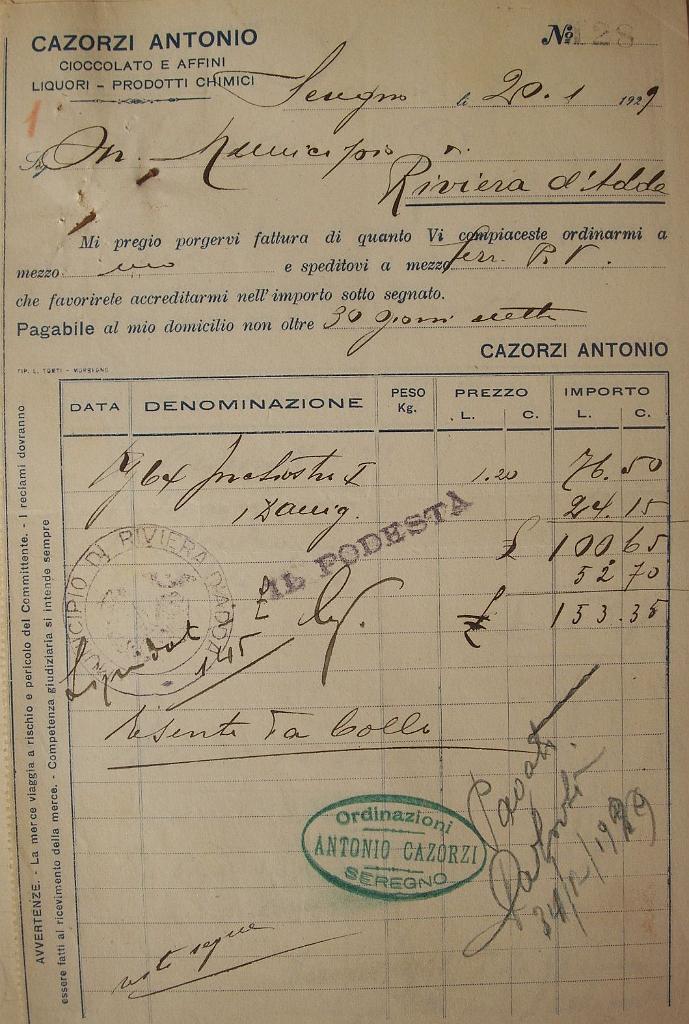 CAZORZI ANTONIO
CIOCCOLATO E AFFINI
LIQUORI - PRODOTTI CHIMICI
№ 128
Seregno li 20.1 1929
On. Municipio
Riviera d'Adda
Mi pregio porgervi fattura di quanto Vi compiaceste ordinarmi a
mezzo e speditovi a mezzo Ferr. P. V.
che favorirete accreditarmi nell'importo sotto segnato.
Pagabile al mio domicilio non oltre 30 giorni netto
CAZORZI ANTONIO
TIP. L. TORTI - MORBEGNO
DATA DENOMINAZIONE PESO Kg. PREZZO L. C. IMPORTO L. C.
1.20 76.50
1 Damig. 24.15
£ 100 65
52 70
£ 153.35
IL PODESTÀ
MUNICIPIO DI RIVIERA D'ADDA
Liquidat £
145
Esente da bollo
Ordinazioni
ANTONIO CAZORZI
SEREGNO
Pagato
/12/1929
AVVERTENZE. - La merce viaggia a rischio e pericolo del Committente. - I reclami dovranno
essere fatti al ricevimento della merce. - Competenza giudiziaria si intende sempre